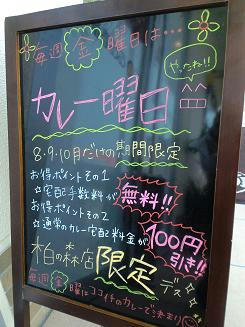 毎週金曜日は…
やったね!!
カレー曜日
8・9・10月だけの期間限定
お得ポイントその1
☆宅配手数料が
無料!!
お得ポイントその2
☆通常のカレー宅配料金が
100円引き!!
柏の森店限定デス
毎週金曜はココイチのカレーで決まり